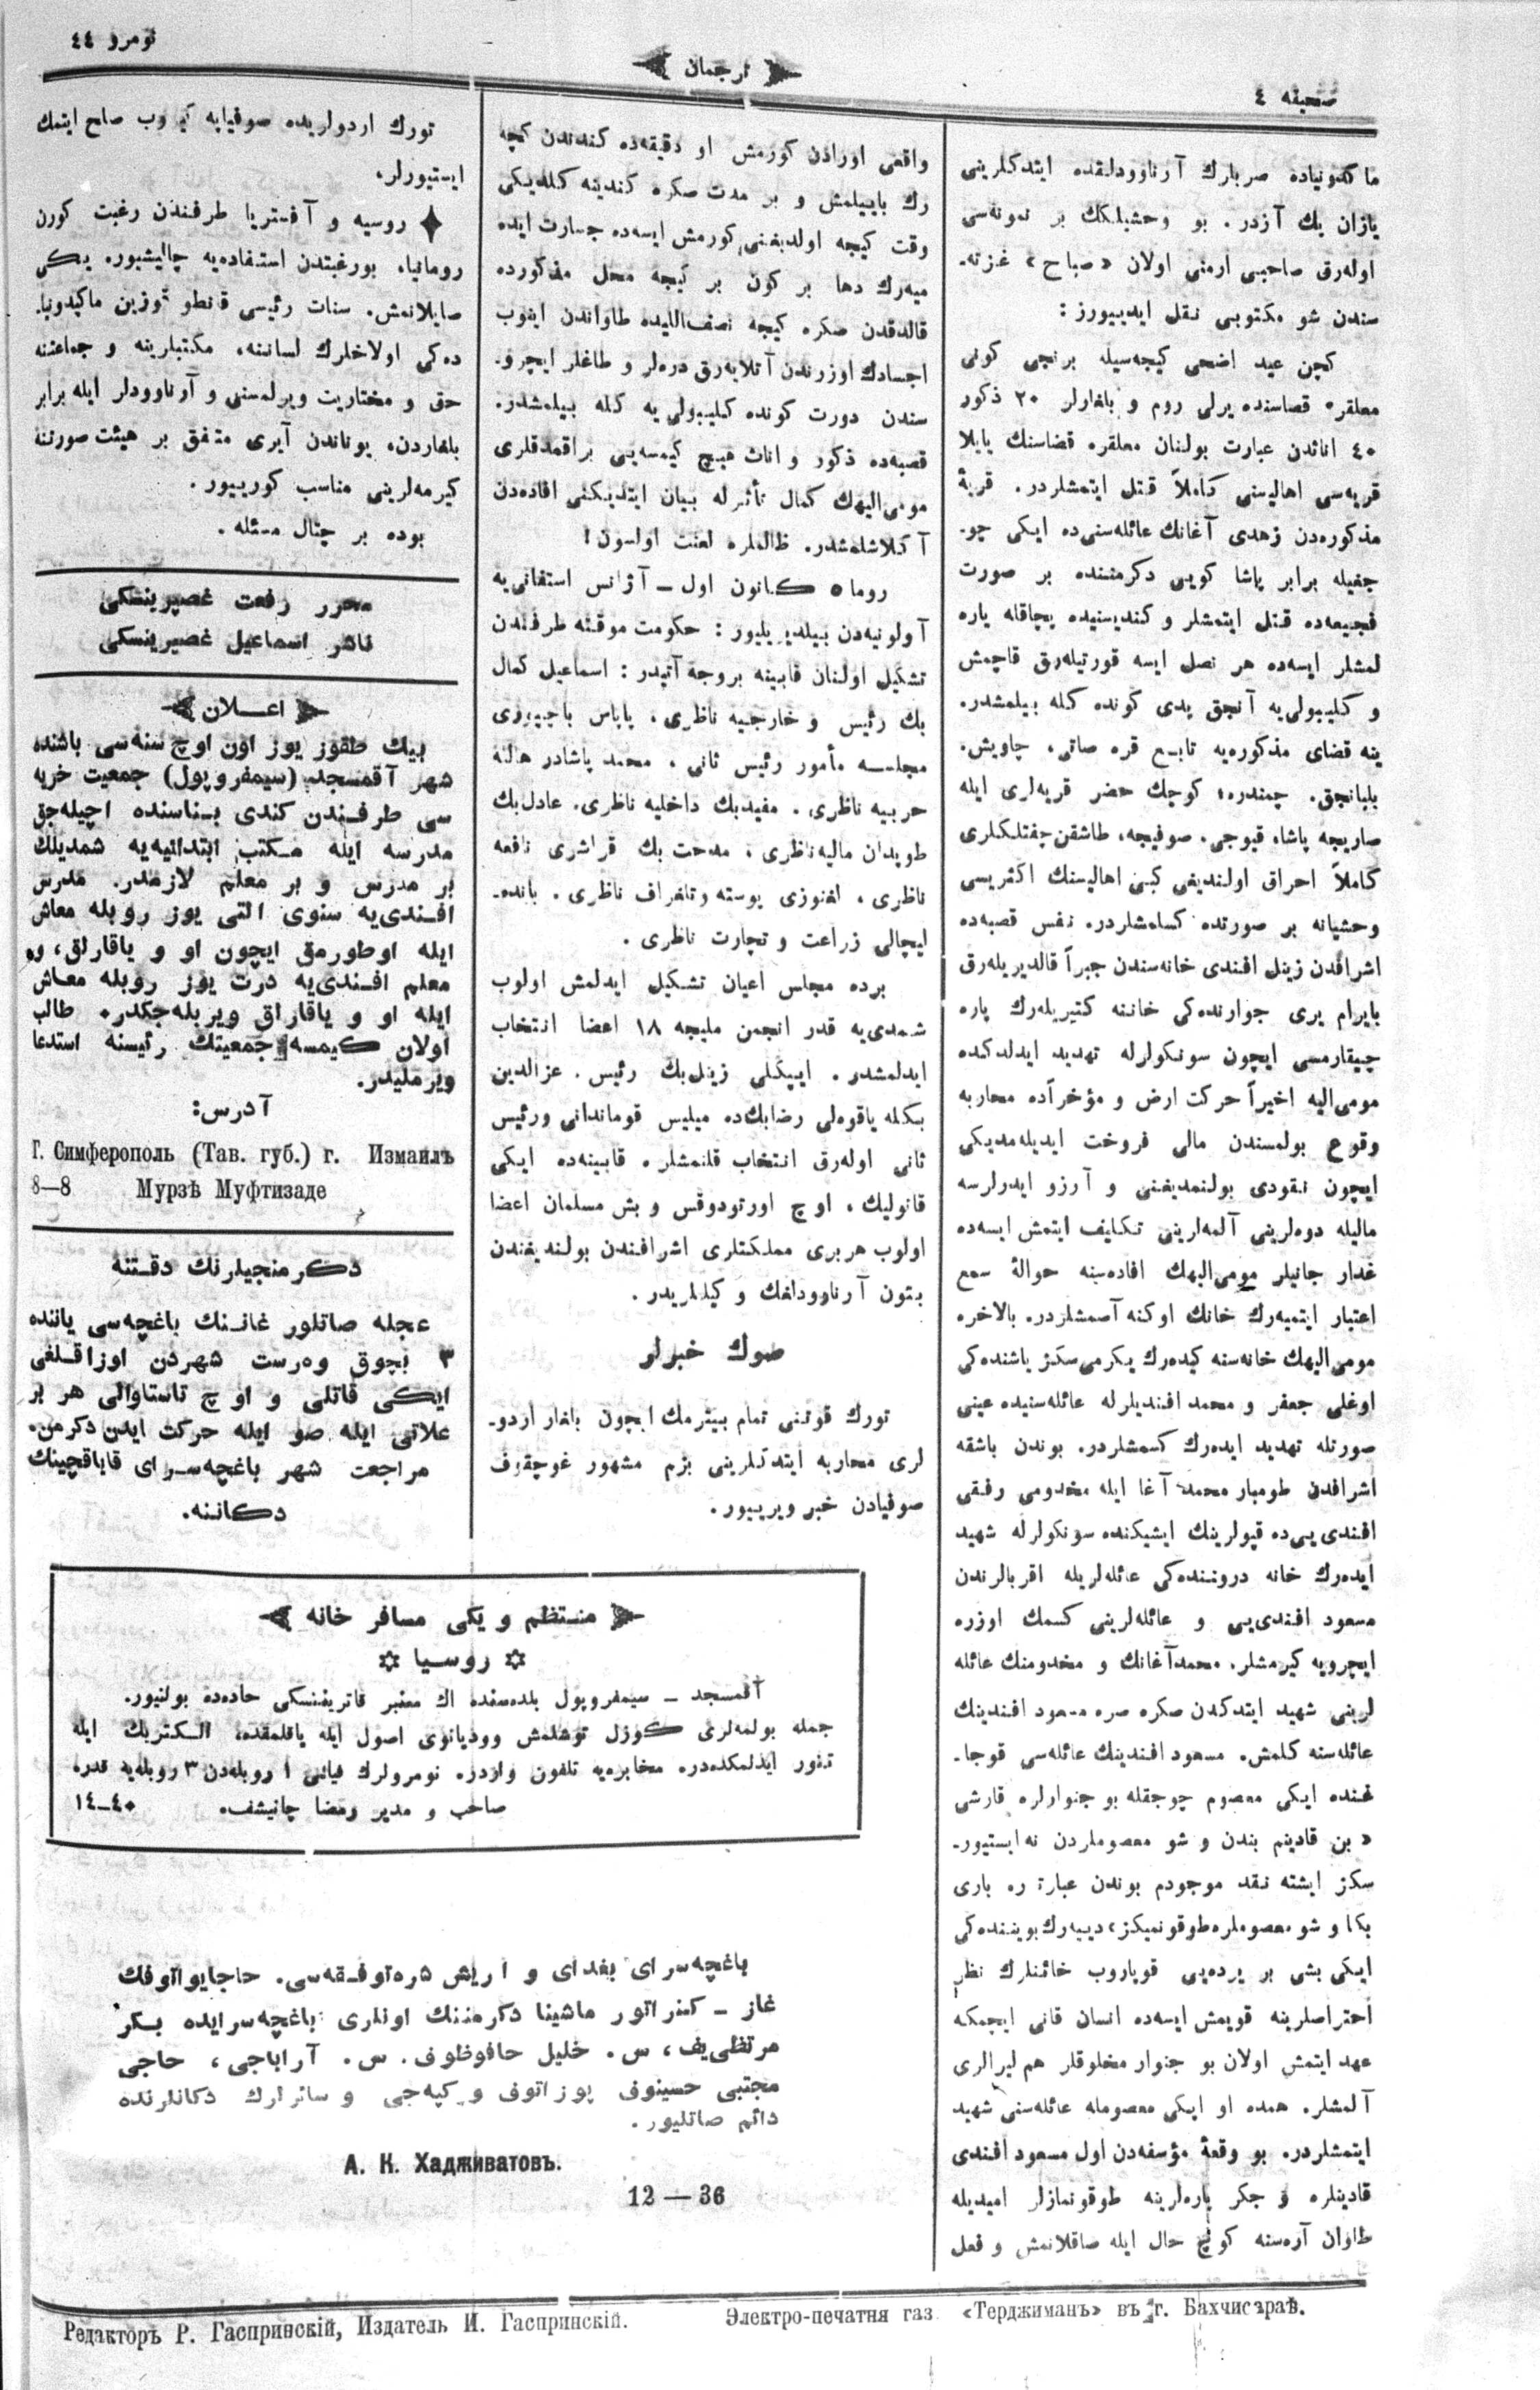 صحیفه ٤
ترجمان
نومرو ٤٤
ماكدونیاده صربلرك آرناوودلقده ایتدكلرینی
یازان پك آزدر. بو وحشیلكك بر نمونه‌سی
اوله‌رق صاحبی ارمنی اولان «صباح» غزته‌
سندن شو مكتوبی نقل ایدییورز:
كچن عید اضحی كیجه‌سیله برنجی كونی
معلقره قصاسنده یرلی روم و بلغارلر ٢٠ ذكور
٤٠ اناثدن عبارت بولنان معلقره قضاسنك یایلا
قریه‌سی اهالیسنی كاملاً قتل ایتمشلردر. قریۀ
مذكوره‌دن زهدی آغانك عائله‌سنی‌ده ایكی چو‌
جغیله برابر پاشا كویی دكرمننده بر صورت
فجیعه‌ده قتل ایتمشلر و كندیسنیده بچاقله یاره
لمشلر ایسه‌ده هر نصل ایسه قورتیله‌رق قاچمش
و كلیبولی‌یه آنجق یدی كونده كله بیلمشدر.
ینه قضای مذكوره‌یه تابع قره صاتی، چاویش،
بلبانجق، چمندره، كوچك حضر قریه‌لری ایله
صاریجه پاشا، قیوجی، صوفیجه، طاشقن چفتلكلری
كاملاً احراق اولندیغی كبی اهالیسنك اكثریسی
وحشیانه بر صورتده كسلمشلردر. نفس قصبه‌ده
اشرافدن زینل افندی خانه‌سندن جبراً قالدیریله‌رق
بایرام یری جوارنده‌كی خاننه كتیریله‌رك پاره
چیقارمسی ایچون سونكولرله تهدید ایدلدكده
مومی‌الیه اخیراً حركت ارض و مؤخرآده محاربه
وقوع بولمسندن مالی فروخت ایدیله‌مدیكی
ایچون نقودی بولنمدیغنی و آرزو ایدرلرسه
مالیله دوه‌لرینی آلمه‌لرینی تكلیف ایتمش ایسه‌ده
غدار جانیلر مومی‌الیهك افاده‌سنه حوالۀ سمع
اعتبار ایتمیه‌رك خانك اوكنه آصمشلردر. بالاخره
مومی‌الیهك خانه‌سنه كیده‌رك یكرمی‌سكز یاشنده‌كی
اوغلی جعفر و محمد افندیلرله عائله‌سنیده عینی
صورتله تهدید ایده‌رك كسمشلردر. بوندن باشقه
اشرافدن طومبار محمد آغا ایله مخدومی رفقی
افندی‌یی‌ده قپولرینك ایشیكنده سونكولرله شهید
ایده‌رك خانه درونــنده‌كی عائله‌لریله اقربالرندن
مسعود افندی‌یی و عائله‌لرینی كسمك اوزره
ایچرویه كیرمشلر. محمدآغانك و مخدومنك عائله
لرینی شهید ایتدكدن صكره صره مسعود افندینك
عائله‌سنه كلمش. مسعود افندینك عائله‌سی قوجا‌
غنده ایكی معصوم چوجقله بو جنوارلره قارشی
«بن قادینم بندن و شو معصوملردن نه ایستیور‌
سكز ایشته نقد موجودم بوندن عبارتدره باری
بكا و شو معصوملره طوقونمیكز» دییه‌رك بویننده‌كی
ایكی بشی بر یرده‌یی قوپاروب خائنلرك نظر
احتراصلرینه قویمش ایسه‌ده انسان قانی ایچمكه
عهد ایتمش اولان بو جنوار مخلوقلر هم لیرالری
آلمشلر. همده او ایكی معصومله عائله‌سنی شهید
ایتمشلردر. بو وقعۀ مؤسفه‌دن اول مسعود افندی
قادینلره و جكر پاره‌لرینه طوقونمازلر امیدیله
طاوان آره‌سنه كوچ حال ایله صاقلانمش و فعل
واقعی اورادن كورمش او دقیقه‌ده كندندن كچه
رك بایلمش و بر مدت صكره كندینه كلدیكی
وقت كیجه اولدیغنی كورمش ایسه‌ده جسارت ایده
میه‌رك دها بر كون بر كیجه محل مذكورده
قالدقدن صكره كیجه نصف‌اللیلده طاواندن اینوب
اجسادك اوزرندن آتلایه‌رق دره‌لر و طاغلر ایچرو‌
سندن دورت كونده كلیبولی یه كله بیلمشدر.
قصبه‌ده ذكور و اناث هیچ كیمسه‌یی براقمدقلری
مومی‌الیهك كمال تأثرله بیان ایتدیكنی افاده‌دن
آكلاشلمشدر. ظالملره لعنت اولسون!
روما ٥ كانون اول — آژانس استفانی‌یه
آولونیه‌دن بیلدیریلیور: حكومت موقته طرفندن
تشكیل اولنان قابینه بروجه آتیدر: اسماعیل كمال
بك رئیس و خارجیه ناظری، پاپاس
مجلســه مأمور رئیس ثانی، محمد پاشا
حربیه ناظری، مفیدبك داخلیه ناظری، عادل‌بك
طوپدان مالیه ناظری، مدحت بك قراشری نافعه
ناظری، لغنوزی پوسته و تلغراف ناظری،
زراعت و تجارت ناظری.
برده مجلس اعیان تشكیل ایدلمش اولوب
شمدی‌یه قدر انجمن ملیجه ١٨ اعضا انتخاب
ایدلمشدر. ایپكلی زینل‌بك رئیس، عزالدین
بكله یاقوه‌لی رضابك‌ده میلیس قوماندانی ورئیس
ثانی اوله‌رق انتخاب قلنمشلره قابینه‌ده ایكی
قاتولیك، اوچ اورتودوقس و بش مسلمان اعضا
اولوب هربری مملكتلری اشرافندن بولندیغندن
بتون آرناوودلغك وكیللریدر.
صوك خبرلر
تورك قوتنی تمام بیتیرمك ایچون بلغار اردو‌
لری محاربه ایتدكلرینی بزم مشهور غوچقوف
صوفیادن خبر ویرییور.
تورك اردولریده صوفیایه كیروب صلح ایتمك
ایستیورلر.
روسیه و آفستریا طرفندن رغبت كورن
رومانیا، بورغبتدن استفاده‌یه چالیشیور. یكی
صایلانمش. سنات رئیسی قانطو قوزین ماكیدونیا
ده‌كی اولاخلرك لساننه، مكتبلرینه و جماعتنه
حق و مختاریت ویرلمسنی و آرناوودلر ایله برابر
بلغاردن، یوناندن آیری متفق بر هیئت صورتنه
كیرمه‌لرینی مناسب كورییور.
بوده بر چتال مسئله.
محرر رفعت غصپرینسكی
ناشر اسماعیل غصپرینسكی
اعــلان
بیك طقوز یوز اون اوچ سنه‌سی باشنده
شهر آقمسجد (سیمفروپول) جمعیت خریه
سی طرفندن كندی بناسنده اچیله‌جق
مدرسه ایله مكتب ابتدائیه‌یه شمدیلك
بر مدرس و بر معلم لازمدر. مدرس
افندی‌یه سنوی التی یوز روبله معاش
ایله اوطورمق ایچون او و یاقارلق، وه
معلم افندی‌یه درت یوز روبله معاش
ایله او و یاقارلق ویریله‌جكدر. طالب
اولان كیمسه جمعیتك رئیسنه استدعا
ویرملیدر.
آدرس:
Г. Симферополь (Тав. губ.) г. Измаилъ
8—8 Мурзѣ Муфтизаде
دكرمنجیلرنك دقتنه
عجله صاتلور غاننك باغچه‌سی یاننده
٣ بچوق وه‌رست شهردن اوزاقلغی
ایكی قاتلی و اوچ تاستاوالی هر بر
علاتی ایله صو ایله حركت ایدن دكرمن.
مراجعت شهر باغچه‌سرای قاباقچینك
دكاننه.
منتظم و یكی مسافر خانه
روسیا
آقمسجد — سیمفروپول بلده‌سنده اك معتبر قاتریننسكی جاده‌ده بولنیور.
جمله بولمه‌لری كوزل توشلمش وودیانوی اصول ایله یاقلمقده، الكتریك ایله
تنور ایدلمكده‌در. مخابره‌یه تلفون واردر. نومرولرك فیاتی ١ روبله‌دن ٣ روبله‌یه قدر.
صاحب و مدیر رمضا چانیشف. ٤٠—١٤
باغچه‌سرای بغدای و اریش فقه‌سی. حاجایواتوفك
غاز — كنراتور ماشینا دكرمننك اونلری باغچه‌سرایده بكر
مرتظی‌یف، س. خلیل حافوظوف. س. آراباجی، حاجی
مجتبی حسینوف پوزاتوف و كپه‌جی و سائرلرك دكانلرنده
دائم صاتلیور.
А. К. Хадживатовъ.
12 — 36
Редакторъ Р. Гаспринскій, Издатель И. Гаспринскій.
Электро-печатня газ. «Терджиманъ» въ г. Бахчисараѣ.